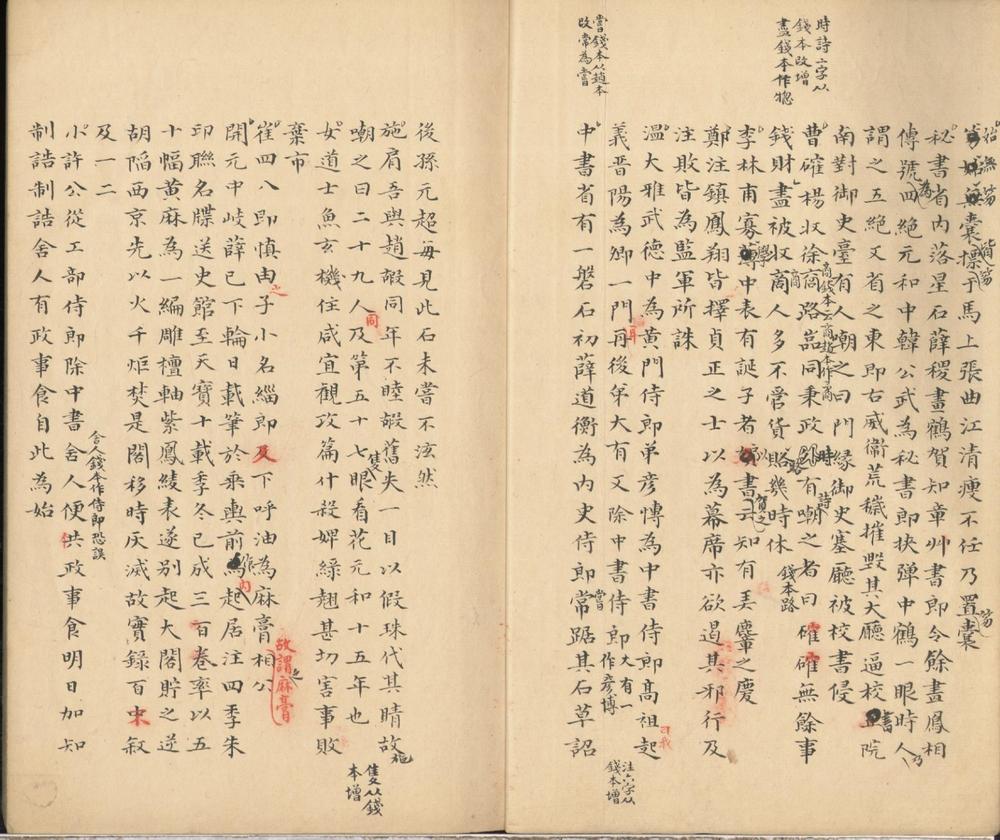 時詩二字从
錢本改增
盡錢本作惣
嘗錢本从趙本
改常為嘗
始無笏
囊摽于馬上張曲江清瘦不任乃置囊
秘書省內落星石薛稷畫鶴賀知章艸書郎令餘畫鳳相
傳號為四絕元和中韓公武為秘書郎挾彈中鶴一眼時人乃
謂之五絕又省之東即右威衞荒穢摧毀其大廳逼校書院
南對御史臺有人嘲之曰門緣御史塞廳被校書侵
曹確楊收徐商路嵓同秉政時有嘲之者曰確確無餘事
商錢本云商趙本作啇
錢財盡被收商人多不管貨賂幾時休
錢本路
李林甫寡學中表有誕子者以書賀之云知有弄麞之慶
鄭注鎮鳳翔皆擇貞正之士以為幕席亦欲遏其邪行及
注敗皆為監軍所誅
溫大雅武德中為黃門侍郎弟彥博為中書侍郎高祖起
義晉陽為卿一門再後弟大有又除中書侍郎
大有一
作彥博
注六字从
錢本增
中書省有一磐石初薛道衡為內史侍郎常嘗踞其石草詔
後孫元超每見此石未嘗不泫然
施肩吾與趙嘏同年不睦嘏舊失一目以假珠代其睛故施
嘲之曰二十九人同及第五十七隻眼看花元和十五年也
隻从錢
本增
女道士魚玄機住咸宜觀攻篇什殺婢綠翹甚切害事敗
棄市
崔四八即慎由之子小名緇郎及下呼油為麻膏相公
故謂之麻膏
開元中岐薛已下輪日載筆於乘輿前作內起居注四季朱
印聯名牒送史館至天寶十載季冬已成三百卷率以五
十幅黃麻為一編雕檀軸紫鳳綾表遂別起大閣貯之逆
胡陷西京先以火千炬焚是閣移時灰滅故實錄百未叙
及一二
小許公從工部侍郎除中書舍人便供政事食明日加知
舍人錢本作侍郎恐誤
制誥制誥舍人有政事食自此為始